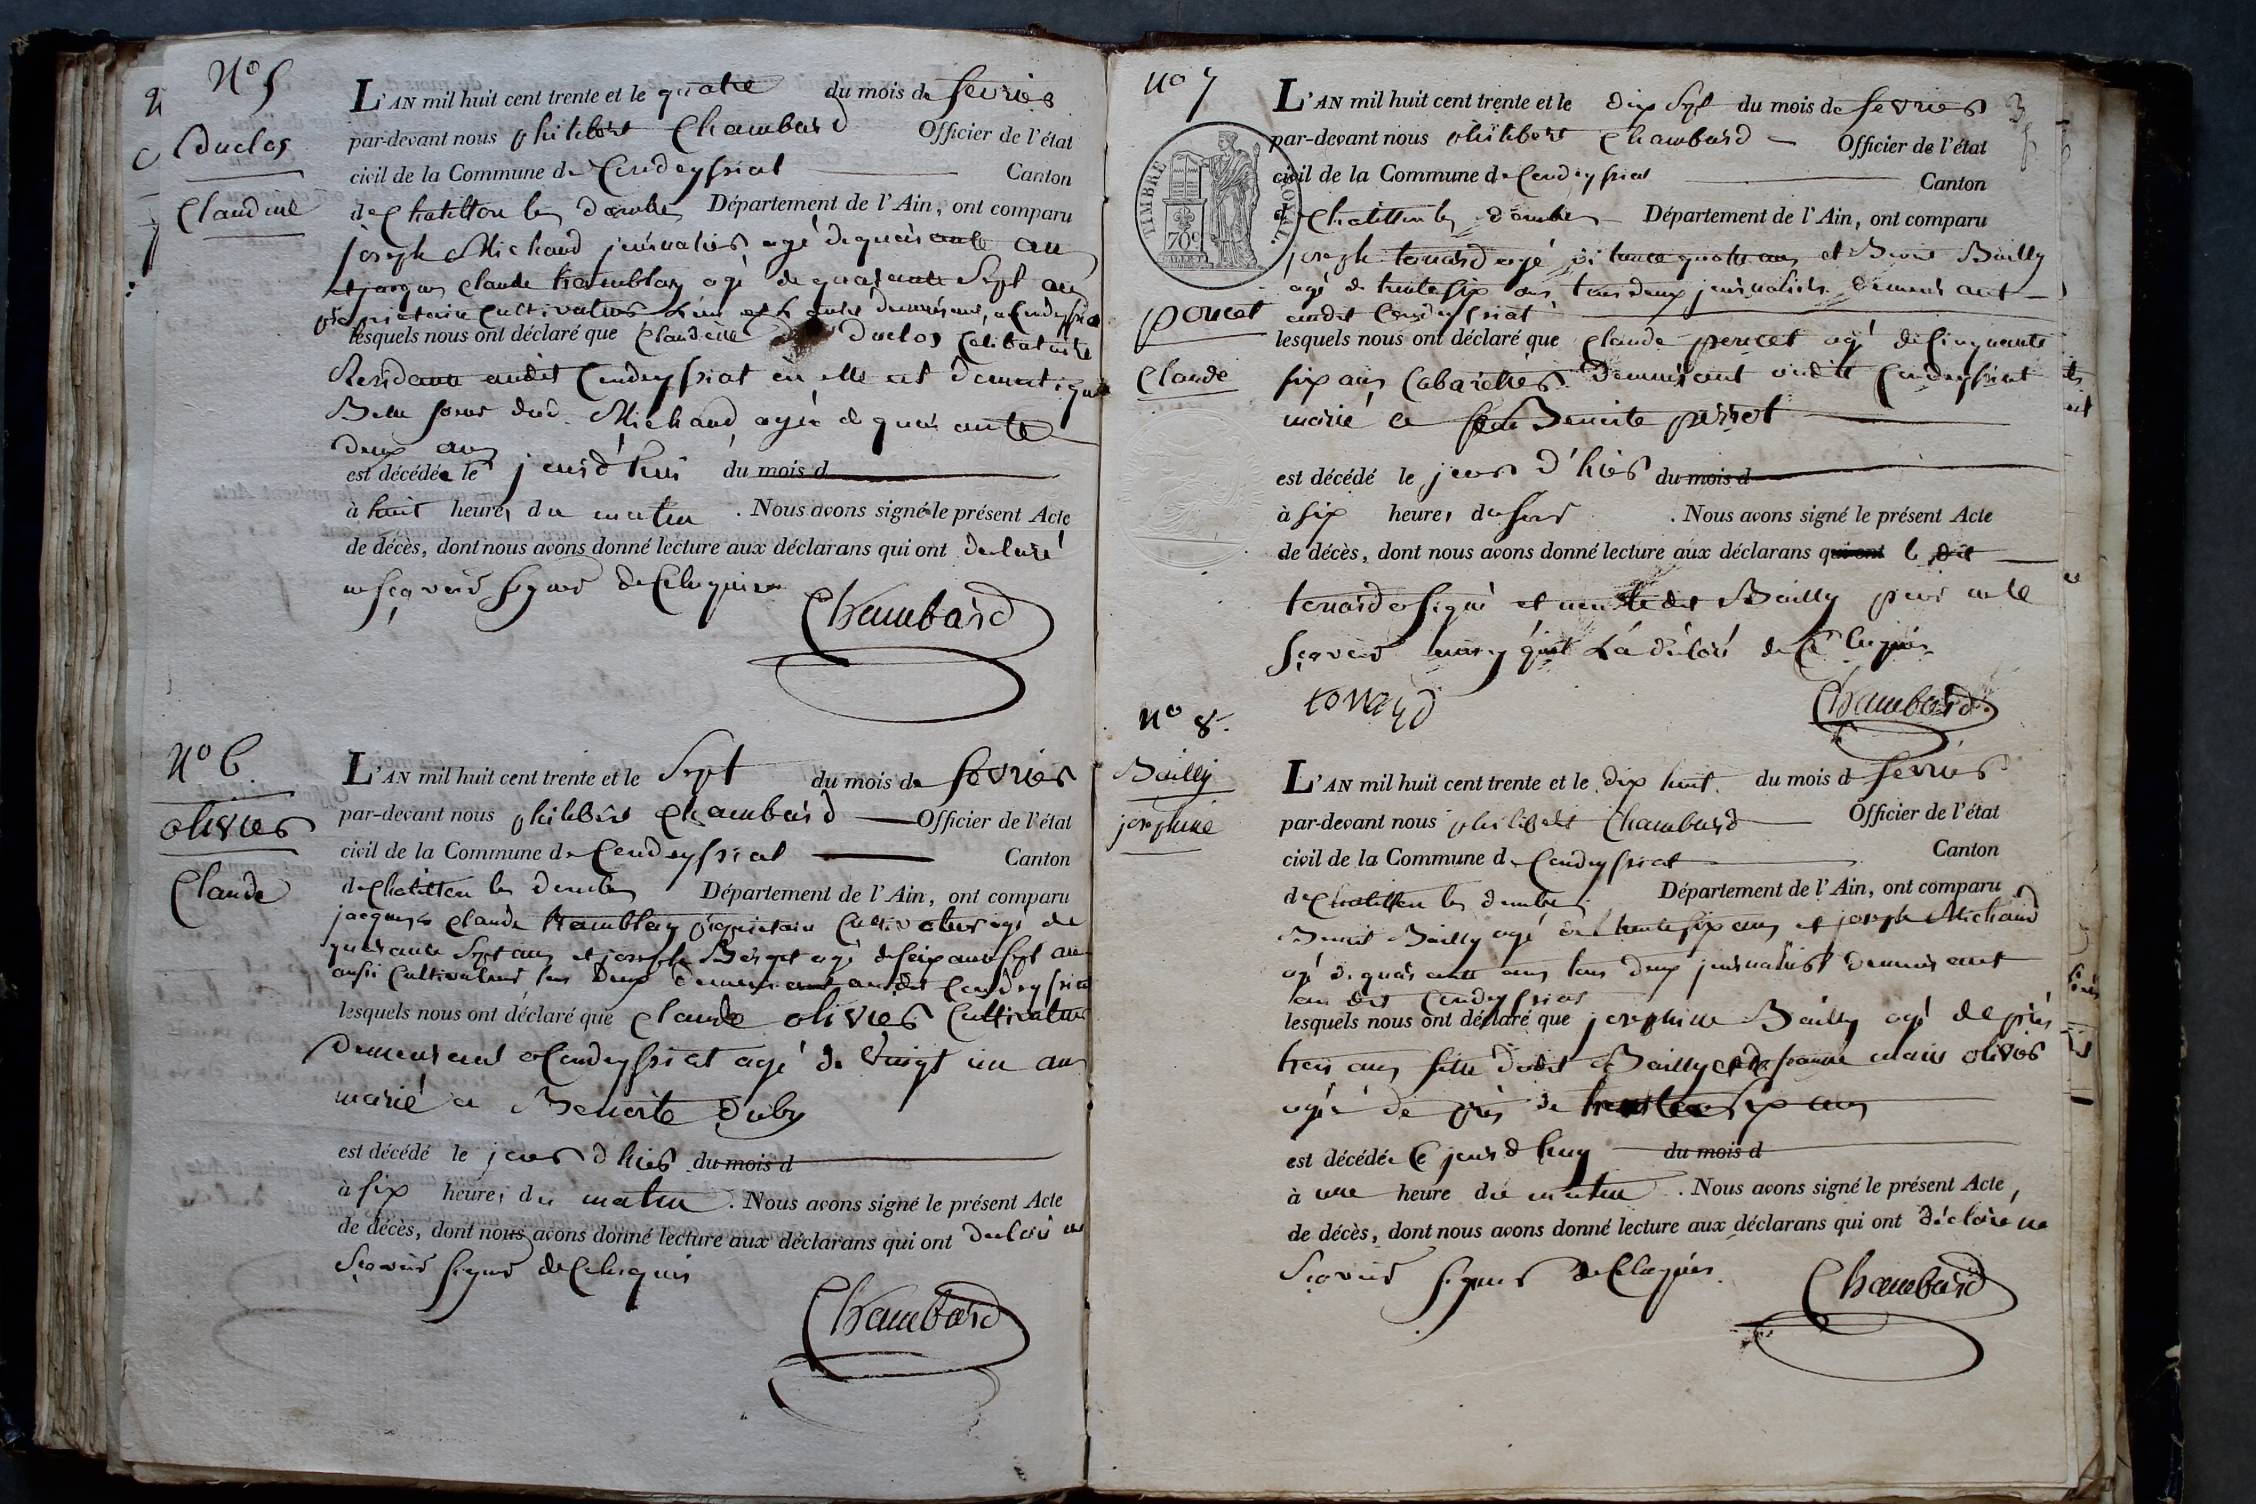 N° 5
Duclos
Claudine
L'AN mil huit cent trente et le quatre du mois de fevrier
par-devant nous philibert Chambard Officier de l'état
civil de la Commune de Condeyssiat Canton
de Chatillon les dombes Département de l'Ain, ont comparu
joseph Michaud journalier agé de quarante ans
et jacques claude tramblay agé de quarante Sept ans
proprietaire Cultivateur L'un et L'autre demeurant a Condeyssiat
lesquels nous ont déclaré que Claudine Duclos Celibataire
Residante audit Condeyssiat ou elle est domestique
Belle soeur dud. Michaud agée de quarante
deux ans
est décédée le jourd'hui du mois d
à huit heures du matin . Nous avons signé le présent Acte
de décès, dont nous avons donné lecture aux déclarans qui ont declaré
ne sçavoir signer de Ce Enquis
Chambard
N° 6.
olivier
Claude
L'AN mil huit cent trente et le Sept du mois de fevrier
par-devant nous philibert Chambard Officier de l'état
civil de la Commune de Condeyssiat Canton
de Chatillon les dombes Département de l'Ain, ont comparu
jacques Claude tramblay proprietaire Cultivateur agé de
quarante Sept ans et joseph Berget agé de soixante Sept ans
aussi Cultivateur tous Deux demeurant audit Condeyssiat
lesquels nous ont déclaré que Claude olivier Cultivateur
Demeurant a Condeyssiat agé de vingt un ans
marié a Benoite Duby
est décédé le jour d'hier du mois d
à six heures du matin . Nous avons signé le présent Acte
de décès, dont nous avons donné lecture aux déclarans qui ont declaré ne
Sçavoir signer de Ce Enquis
Chambard
N° 7
poncet
Claude
TIMBRE ROYAL.
70 c
L'AN mil huit cent trente et le dix Sept du mois de fevrier
par-devant nous philibert Chambard Officier de l'état
civil de la Commune de Condeyssiat Canton
de Chatillon les dombes Département de l'Ain, ont comparu
joseph tenard agé de trente quatre ans et Benoit Bailly
agé de trente six ans tous deux journaliers Demeurant
audit Condeyssiat
lesquels nous ont déclaré que Claude poncet agé de Cinquante
six ans Cabaretier Demeurant audit Condeyssiat
marié a feue Benoite perret
est décédé le jour d'hier du mois d
à six heures du soir . Nous avons signé le présent Acte
de décès, dont nous avons donné lecture aux déclarans qui ont le dit
tenard a signé et non ledit Bailly pour ne le
Sçavoir ainsy qu'il L'a déclaré de Ce Enquis
Chambard
N° 8.
Bailly
josephine
L'AN mil huit cent trente et le dix huit du mois d fevrier
par-devant nous philibert Chambard Officier de l'état
civil de la Commune de Condeyssiat Canton
de Chatillon les dombes Département de l'Ain, ont comparu
Benoit Bailly agé de trente six ans et joseph Michaud
agé de quarante ans tous deux journaliers demeurant
au dit Condeyssiat
lesquels nous ont déclaré que josephine Bailly agé de près
trois ans fille dudit Bailly et de jeanne marie olivier
agée de près de trente six ans
est décédée le jour d huy du mois d
à une heure du matin . Nous avons signé le présent Acte,
de décès, dont nous avons donné lecture aux déclarans qui ont déclaré ne
Sçavoir signer de Ce Enquis.
Chambard